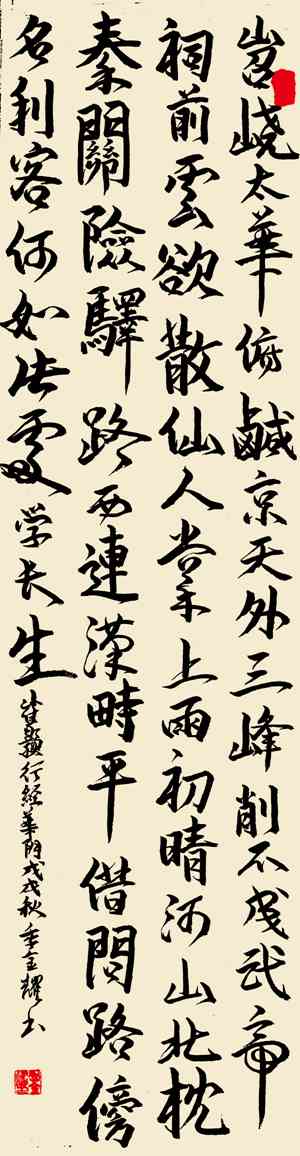 岧嶢太華俯鹹京天外三峰削不成武帝
祠前雲欲散仙人掌上雨初晴河山北枕
秦關險驛路西連漢畤平借問路傍
名利客何如此處学长生
崔顥行經華阴戊戌秋季金耀书